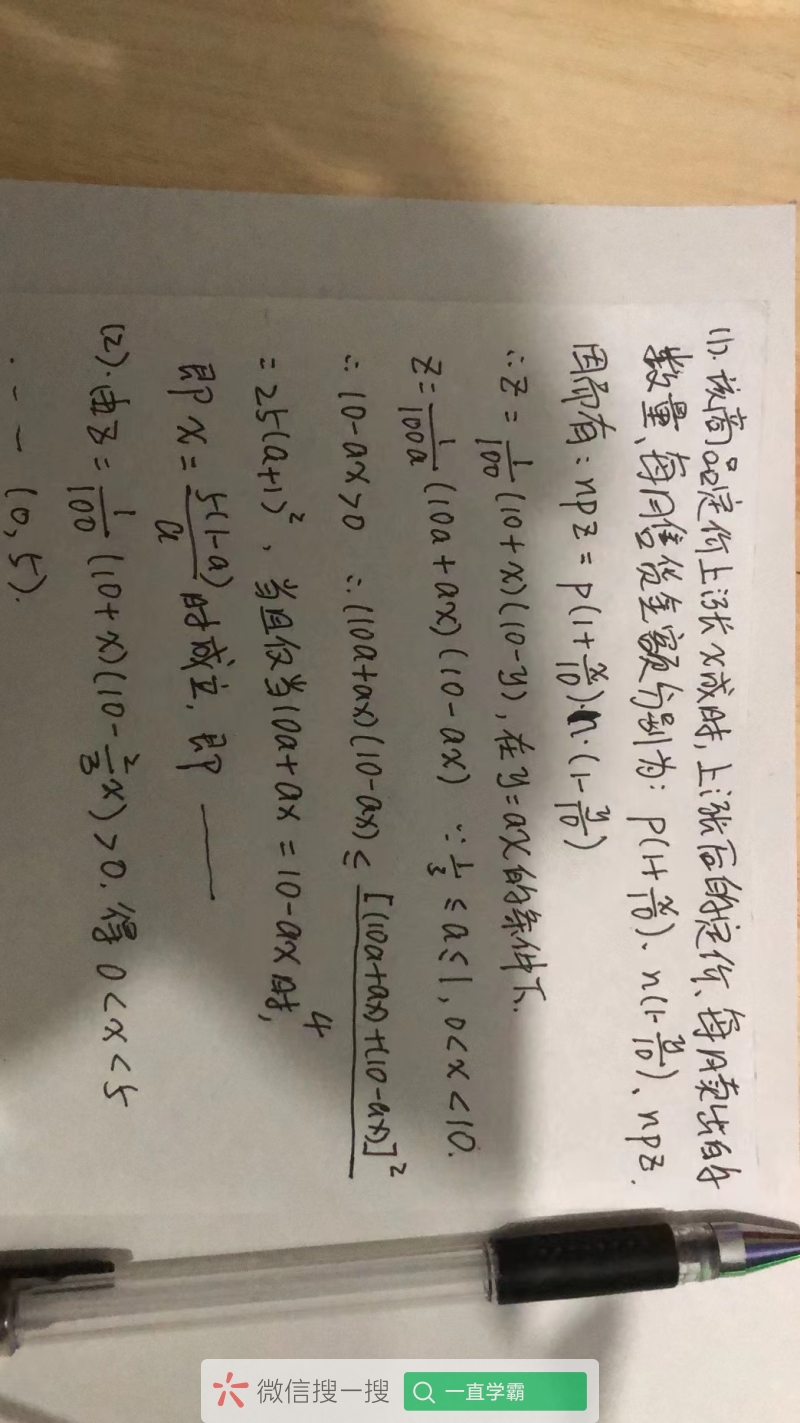 (1). 该商品定价上涨x成时,上涨后的定价、每月卖出的
数量、每月售货金额分别为: p(1+x/10)、n(1-y/10)、npz.
因而有: npz = p(1+x/10)·n·(1-y/10)
∴ z = 1/100 (10+x)(10-y), 在y=ax的条件下.
z = 1/100a (10a+ax)(10-ax) ∵ 1/3 ≤ a ≤ 1, 0<x<10.
∴ 10-ax>0 ∴ (10a+ax)(10-ax) ≤ [(10a+ax)+(10-ax)]²/4
= 25(a+1)², 当且仅当10a+ax = 10-ax时,
即 x = 5(1-a)/a 时成立, 即 ——
(2).由z = 1/100 (10+x)(10-2/3x)>0. 得 0<x<5
· — — (0, 5).
微信搜一搜
一直学霸